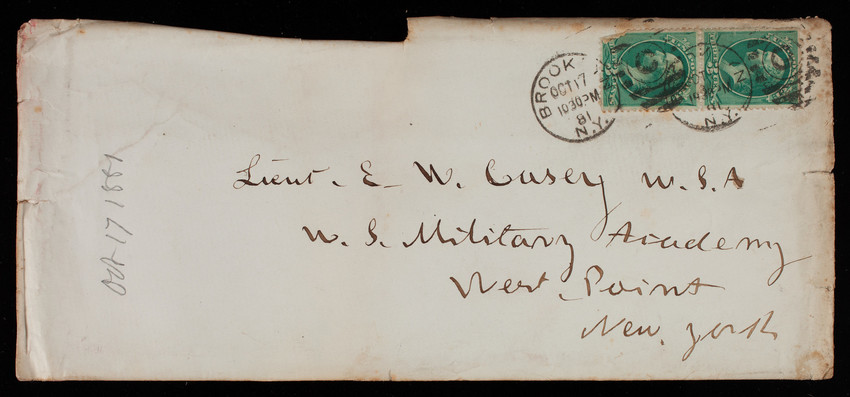 BROOK
OCT 17
10 30 PM
81
N.Y.
N.Y.
Lieut. E. W. Casey U.S.A
U. S. Military Academy
West Point
New York
Oct 17 1881